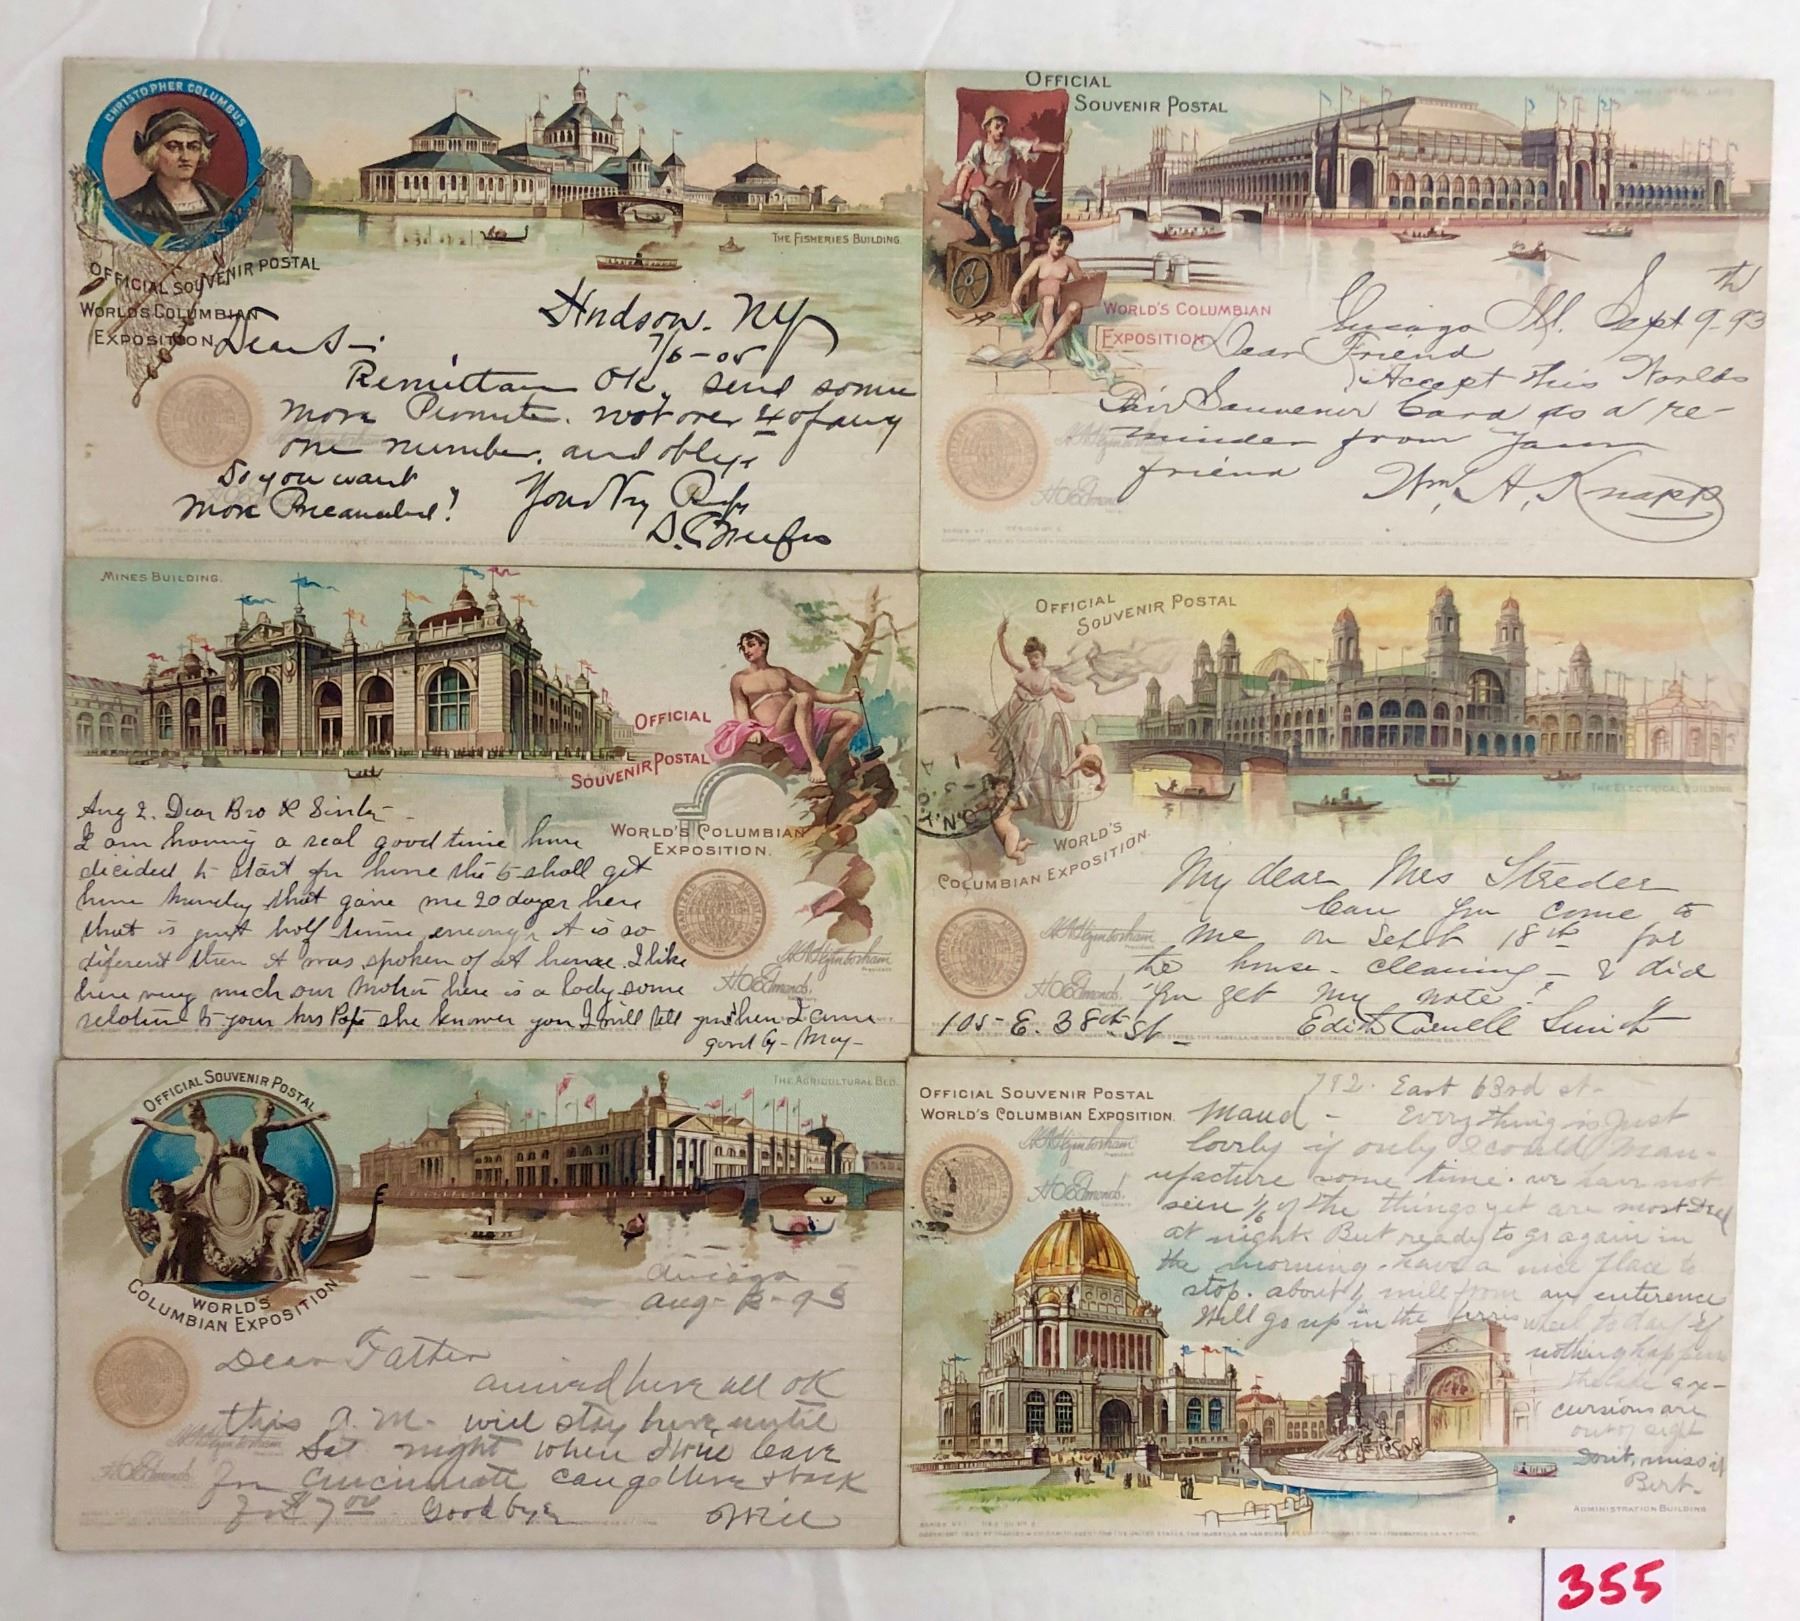 CHRISTOPHER COLUMBUS
THE FISHERIES BUILDING
OFFICIAL SOUVENIR POSTAL
WORLD'S COLUMBIAN
EXPOSITION
Hudson. NY
7/6-05
Dear Sir
Remittance OK, send some
more not over 4 of any
one number, and oblige
Do you want
more Precanceled?
Yours
OFFICIAL
SOUVENIR POSTAL
WORLD'S COLUMBIAN
EXPOSITION
Chicago Ill. Sept 9th-93
Dear Friend
Accept this Worlds
Fair Souvenir Card as a re-
minder from your
friend Wm. H. Knapp
MINES BUILDING.
OFFICIAL
SOUVENIR POSTAL
WORLD'S COLUMBIAN
EXPOSITION.
Aug 2. Dear Bro & Sister-
I am having a real good time have
decided to start for home the 5 shall get
home Monday that gave me 20 days here
that is just half time enough it is so
diferent then it was spoken of at home. I like
here very much our Mother here is a lady some
relation to your Mrs Pope she knows you I will tell you when I come
good by- May-
OFFICIAL
SOUVENIR POSTAL
THE ELECTRICAL BUILDING
WORLD'S
COLUMBIAN EXPOSITION.
My dear Mrs
Can you come to
me on Sept 18th for
the house-cleaning - & did
you get my note?
105- E. 38th St-
Edith Smith
OFFICIAL SOUVENIR POSTAL
WORLD'S
COLUMBIAN EXPOSITION
THE AGRICULTURAL BLD.
Chicago
Aug- -93
Dear Father
arrived here all OK
this A.M. will stay here until
Sat night when I will leave
for Cincinnatti can go there & back
for $7.00 Goodbye
Will
OFFICIAL SOUVENIR POSTAL
WORLD'S COLUMBIAN EXPOSITION.
792. East 63rd st-
Maud - Everything is just
lovely if only I could man-
ufacture some time. we have not
seen 1/6 of the things yet are most dead
at night. But ready to go again in
the morning. have a nice place to
stop. about 1/2 mile from an enterence
Will go up in the ferris wheel to day if
nothing happens
the lake ex-
cursions are
out of sight
Don't miss it
Bert.
ADMINISTRATION BUILDING
355